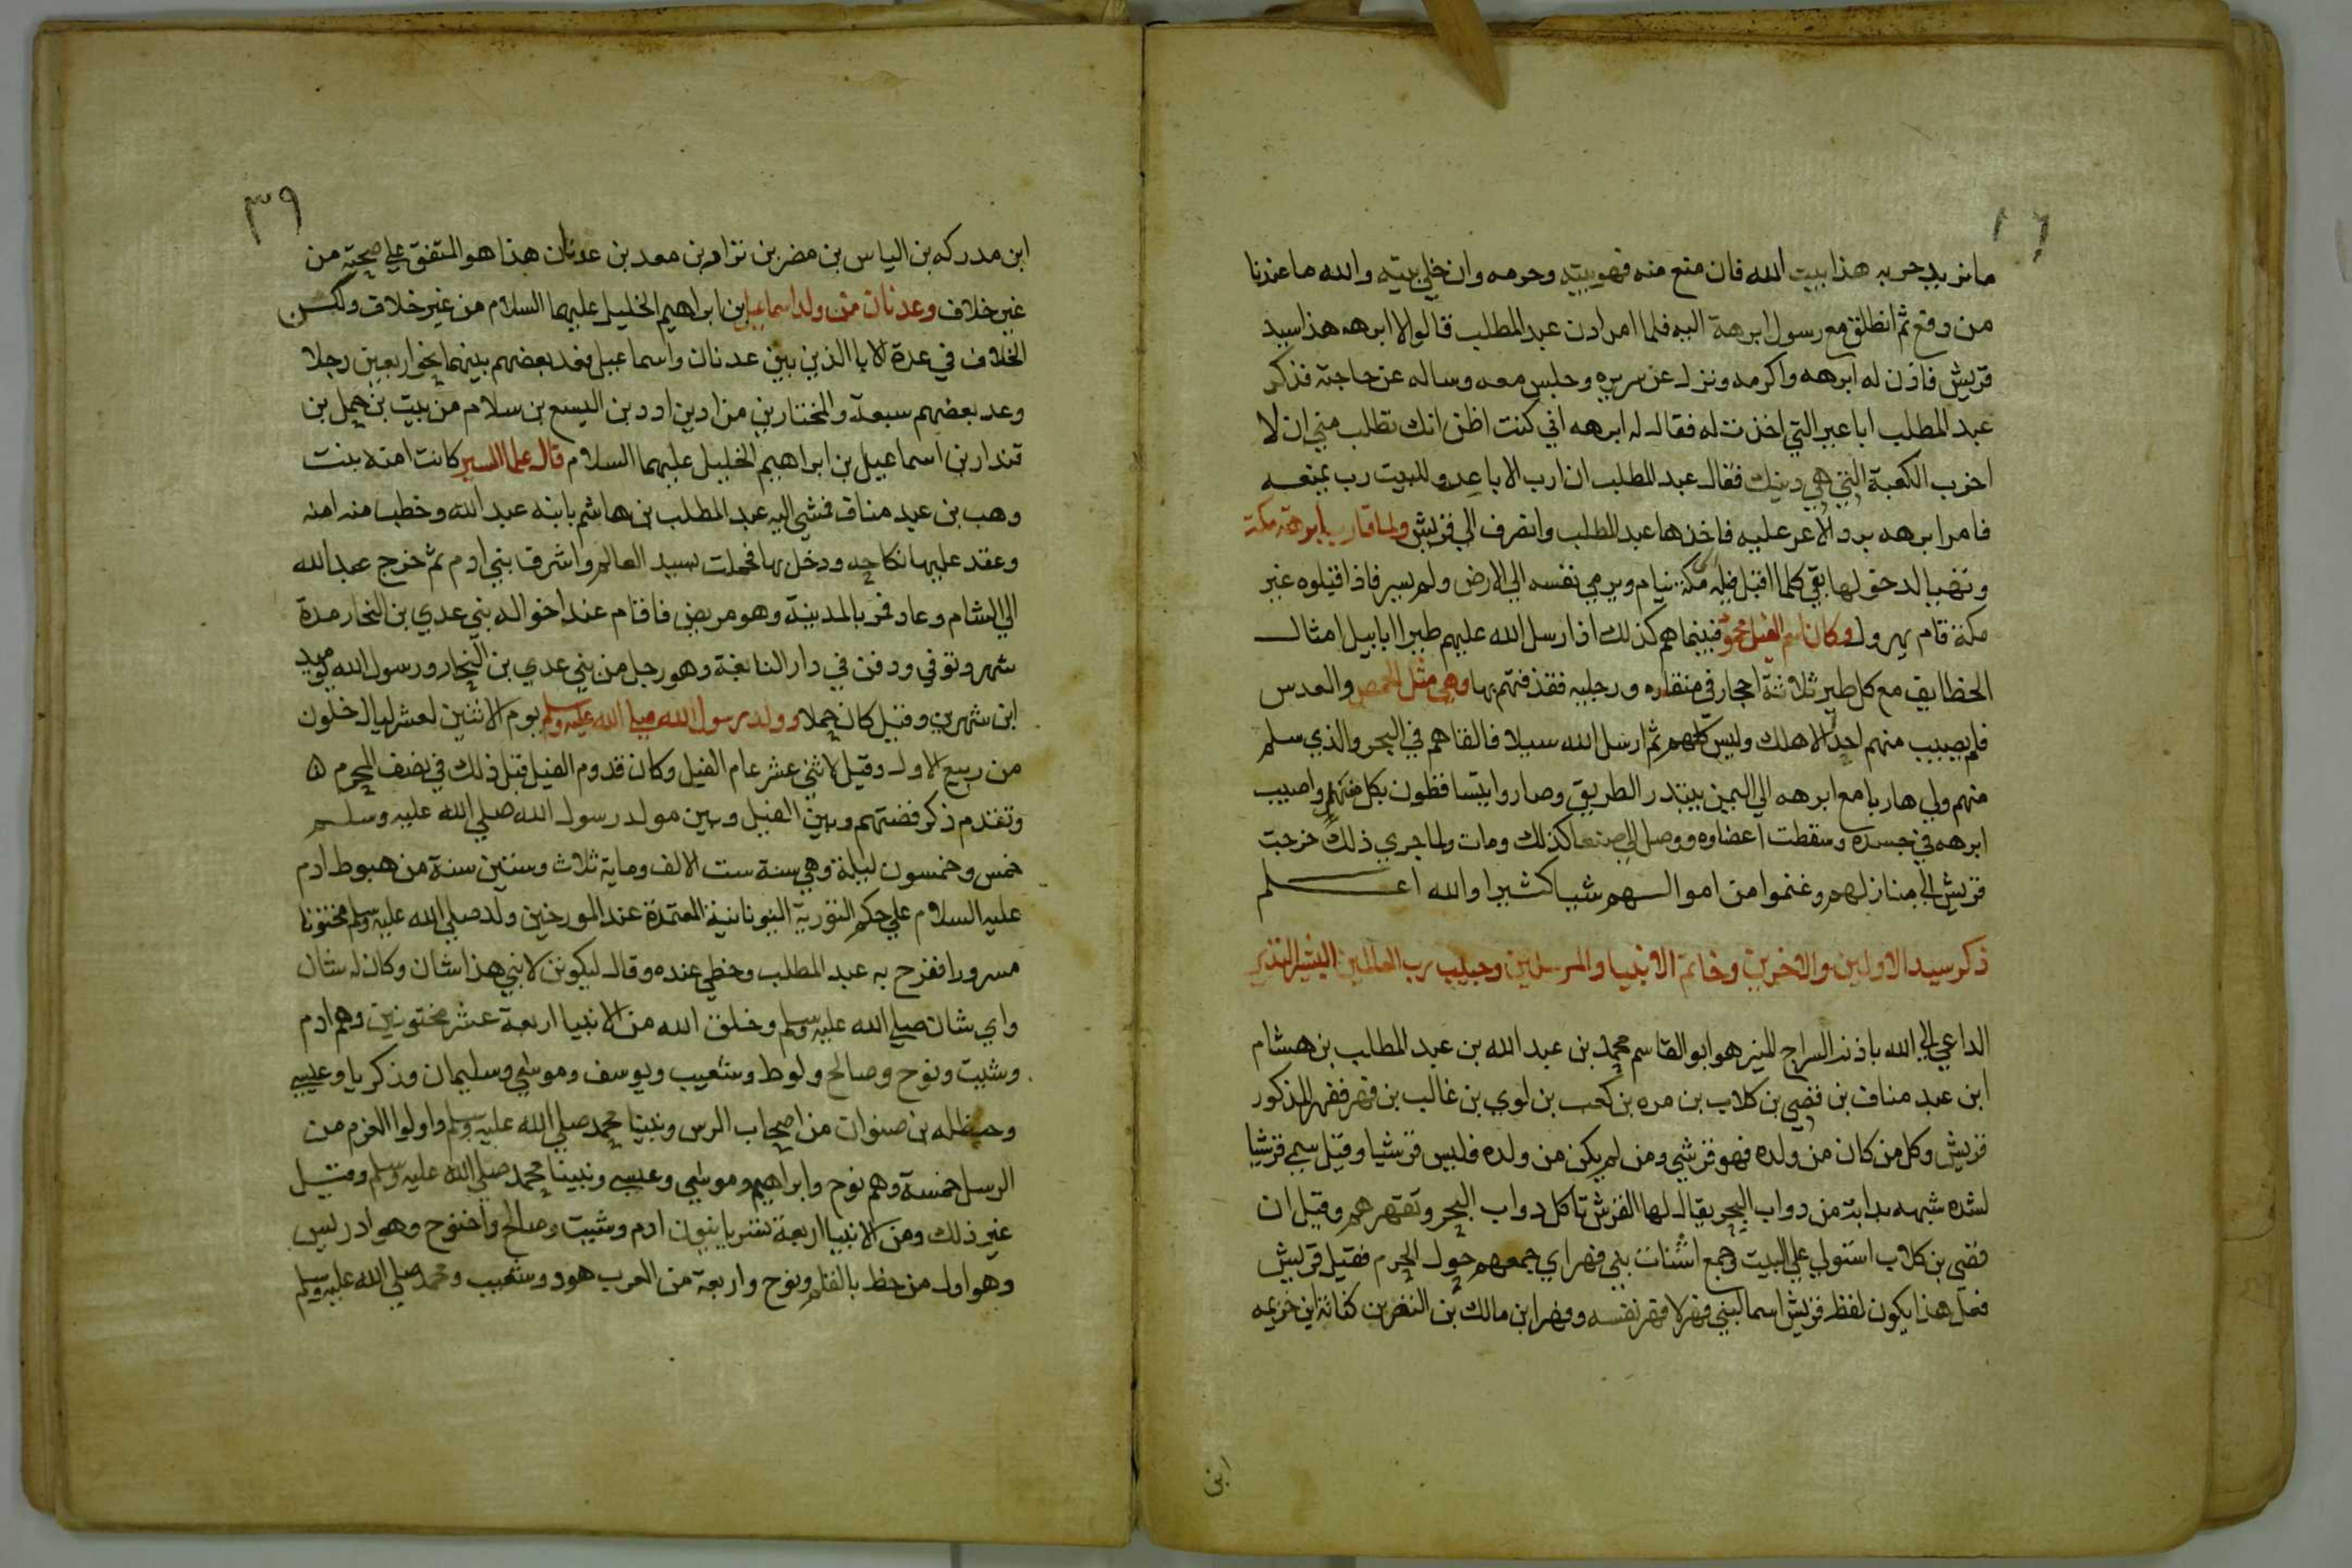 ما نريد حربه هذا بيت الله فان منع منه فهو بيته وحرمه وان خلي بيته والله ما عندنا
من دفع ثم انطلق مع رسول ابرهة اليه فلما امرادن عبد المطلب قالوا لا ابرهه هذا سيد
قريش فاذن له ابرهه واكرمه ونزل عن سريره وجلس معه وساله عن حاجته فذكر
عبد المطلب اباعير التي اخذت له فقال له ابرهه اني كنت اظن انك تطلب مني ان لا
اخرب الكعبة التي هي دينك فقال عبد المطلب ان ارب الاباعر وللبيت رب يمنعه
فامر ابرهه برد الاعر عليه فاخذها عبد المطلب وانصرف الي قريش ولما قارب ابرهة مكة
وتهيا لدخولها بقي كلما اقبل فيله مكة ينام ويرمي نفسه الي الارض ولم يسر فاذا قبلوه غير
مكة قام يهرول وكان اسم الفيل محمود فبينما هم كذلك اذ ارسل الله عليهم طيرا ابابيل امثال
الخطاايف مع كل طير ثلاثة احجار في منقاره ورجليه فقذفتهم بها وهي مثل الحمص والعدس
فلم يصيب منهم احدا الا هلك وليس كلهم ثم ارسل الله سيلا فالقاهم في البحر والذي سلم
منهم ولي هاربا مع ابرهه الي اليمن يبتدر الطريق وصاروا يتساقطون بكل منهل واصيب
ابرهه في جسده وسقطت اعضاوه ووصل الي صنعا كذلك ومات ولما جري ذلك خرجت
قريش الي منازلهم وغنموا من اموالهم شيا كثيرا والله اعلم
ذكر سيد الاولين والاخرين وخاتم الانبيا والمرسلين وحبيب رب العالمين البشير النذير
الداعي الي الله باذنه السراج المنير هو ابو القاسم محمد بن عبد الله بن عبد المطلب بن هشام
ابن عبد مناف بن قصي بن كلاب بن مره بن كعب بن لوي بن غالب بن فهر فهر المذكور
قريش وكل من كان من ولده فهو قرشي ومن لم يكن من ولده فليس قرشيا وقيل سمي قرشيا
لشده شبهه بدابة من دواب البحر يقال لها القرش تاكل دواب البحر وتقهرهم وقيل ان
قصي بن كلاب استولي علي البيت وجمع اشتات بني فهر اي جمعهم حول الحرم فقيل قريش
فعلي هذا يكون لفظ قريش اسما لبني فهر لا فهر نفسه وفهر ابن مالك بن النضر بن كنانة ابن خزيمه
ابن
٣٩
ابن مدركه بن الياس بن مضر بن نزار بن معد بن عدنان هذا هو المتفق علي صحته من
غير خلاف وعدنان من ولد اسماعيل بن ابراهيم الخليل عليهما السلام من غير خلاف ولكن
الخلاف في عدة الابا الذين بين عدنان واسماعيل فعد بعضهم بينهما نحوا ربعين رجلا
وعد بعضهم سبعة والمختار بن من ادبن ادد بن اليسع بن سلام من بيت بن حمل بن
قندار بن اسماعيل بن ابراهيم الخليل عليهما السلام قال علما السير كانت امنة بنت
وهب بن عبد مناف فمشي اليه عبد المطلب بن هاشم بابنه عبد الله وخطب منه امنه
وعقد عليها نكاحه ودخل بها فحملت بسيد العالم واشرف بني ادم ثم خرج عبد الله
الي الشام وعاد فمر بالمدينة وهو مريض فاقام عند اخواله بني عدي بن النجار مدة
شهر وتوفي ودفن في دار النابغة وهو رجل من بني عدي بن النجار ورسول الله يوميد
ابن شهرين وقيل كان حملا وولد رسول الله صلي الله عليه وسلم يوم الاثنين لعشر ليال خلون
من ربيع الاول وقيل لاثني عشر عام الفيل وكان قدوم الفيل قبل ذلك في نصف المحرم ه
وتقدم ذكر قصتهم وبين الفيل وبين مولد رسول الله صلي الله عليه وسلم
خمس وخمسون ليلة وهي سنة ست الالف وماية ثلاث وستين سنة من هبوط ادم
عليه السلام علي حكم التورية اليونانية المعتمدة عند المورخين ولد صلي الله عليه وسلم مختونا
مسرورا ففرح به عبد المطلب وحظي عنده وقال ليكونن لابني هذا شان وكان له شان
واي شان صلي الله عليه وسلم وخلق الله من الانبيا اربعة عشر مختونين وهم ادم
وشيت ونوح وصالح ولوط وشعيب ويوسف وموسي وسليمان وزكريا وعيسي
وحنظله بن صنوان من اصحاب الرس ونبينا محمد صلي الله عليه وسلم واولوا العزم من
الرسل خمسة وهم نوح وابراهيم وموسي وعيسي ونبينا محمد صلي الله عليه وسلم وقيل
غير ذلك ومن الانبيا اربعة سريانيون ادم وشيت وصالح واخنوخ وهو ادريس
وهو اول من خط بالقلم ونوح واربعة من العرب هود وشعيب ومحمد صلي الله عليه وسلم